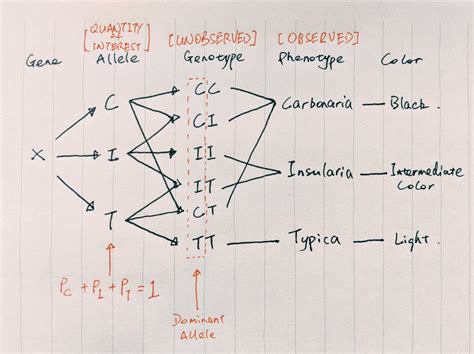 [QUANTITY OF INTEREST] [UNOBSERVED] [OBSERVED]
Gene Allele Genotype Phenotype Color
X
C
I
T
CC
CI
II
IT
CT
TT
Carbonaria Black.
Insularia Intermediate Color
Typica Light.
PC + PI + PT = 1
Dominant
Allele